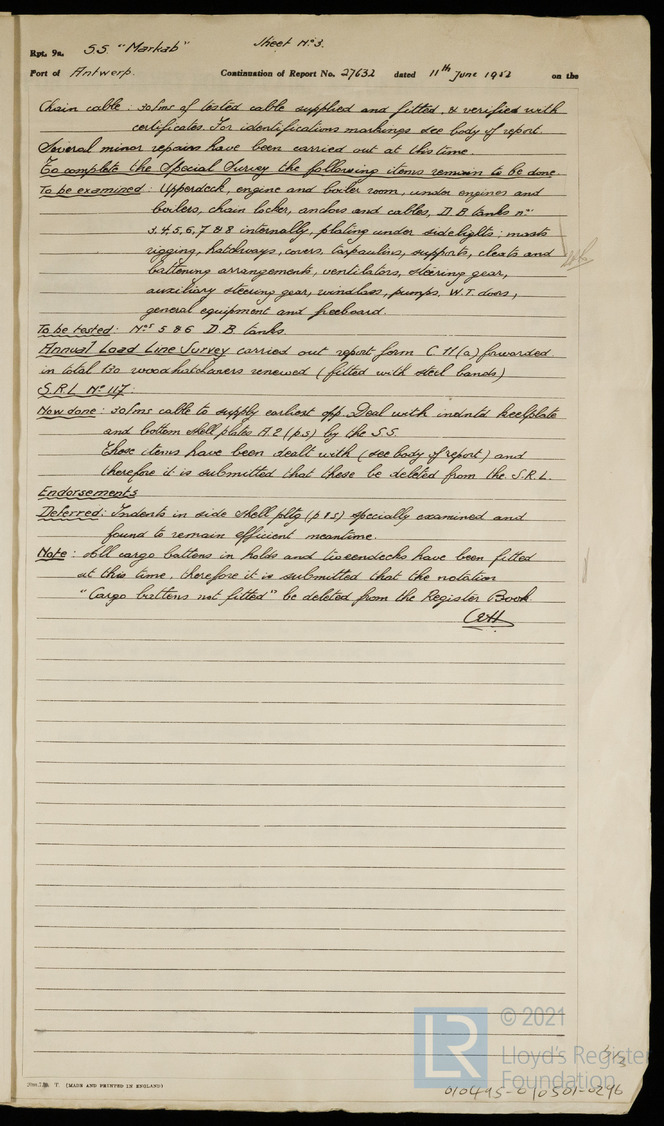 Rpt. 9a. S.S. "Markab" Sheet No 3.
Port of Antwerp. Continuation of Report No. 27632 dated 11th June 1952 on the
Chain cable : 30 fms of tested cable supplied and fitted, & verified with
certificates. For identifications markings see body of report.
Several minor repairs have been carried out at this time.
To complete the Special Survey the following items remain to be done.
To be examined : Upperdeck, engine and boiler room, under engines and
boilers, chain locker, anchors and cables, D.B tanks nos
3,4,5,6,7 & 8 internally, plating under sidelights ; masts
rigging, hatchways, covers, tarpaulins, supports, cleats and
battening arrangements, ventilators, steering gear,
auxiliary steering gear, windlass, pumps, W.T. doors,
general equipment and freeboard.
To be tested : Nos 5 & 6 D.B tanks.
Annual Load Line Survey carried out report form C 11(a) forwarded
in total 130 wood hatchcovers renewed (fitted with steel bands)
S.R.L No 117 :
Now done : 30 fms cable to supply earliest opp. Deal with indntd keelplate
and bottom shell plates A.2 (p.s) by the S.S.
These items have been dealt with (see body of report) and
therefore it is submitted that these be deleted from the S.R.L.
Endorsements
Deferred : Indents in side shell pltg (p & s) specially examined and
found to remain efficient meantime.
Note : All cargo battens in holds and tweendecks have been fitted
at this time, therefore it is submitted that the notation
"Cargo battens not fitted" be deleted from the Register Book
T. (MADE AND PRINTED IN ENGLAND)
LR © 2021
Lloyd's Register
Foundation
3/3
010495-010501-0296